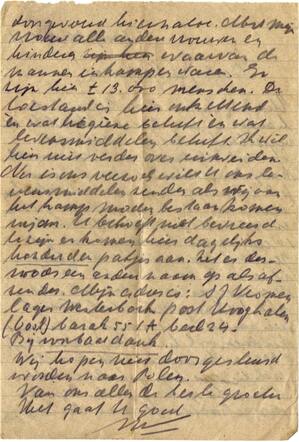 doorgevoerd hierheen. Met mijn
vrouw alle anderen vrouwen en
kinderen waarvan de
mannen in kampen waren. Er
zijn hier ± 13.000 menschen. De
toestand is hier ontzettend
en wat hygiene betreft en wat
levensmiddelen betreft. Ik wil
hier niet verder over uitweiden
Dus is ons verzoek wilt U ons le-
vensmiddelen zenden als wij om
het kamp moeder bestaan komen
mijn. U behoeft niet bevreesd
te zijn er komen hier dagelijks
honderden pakjes aan. het er des-
noods een anderen naam op als af-
zender. Mijn adres is: S J
lager Westerbork post Hooghalen
(Oost) barak 55 1A bed 24.
Bij voorbaat dank.
Wij hopen niet doorgestuurd
worden naar Polen.
Van ons allen de beste groeten
Met gaat U goed